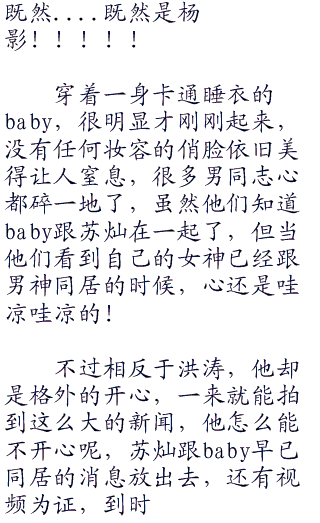 既然....既然是杨
影！！！！！
穿着一身卡通睡衣的
baby，很明显才刚刚起来，
没有任何妆容的俏脸依旧美
得让人窒息，很多男同志心
都碎一地了，虽然他们知道
baby跟苏灿在一起了，但当
他们看到自己的女神已经跟
男神同居的时候，心还是哇
凉哇凉的！
不过相反于洪涛，他却
是格外的开心，一来就能拍
到这么大的新闻，他怎么能
不开心呢，苏灿跟baby早已
同居的消息放出去，还有视
频为证，到时